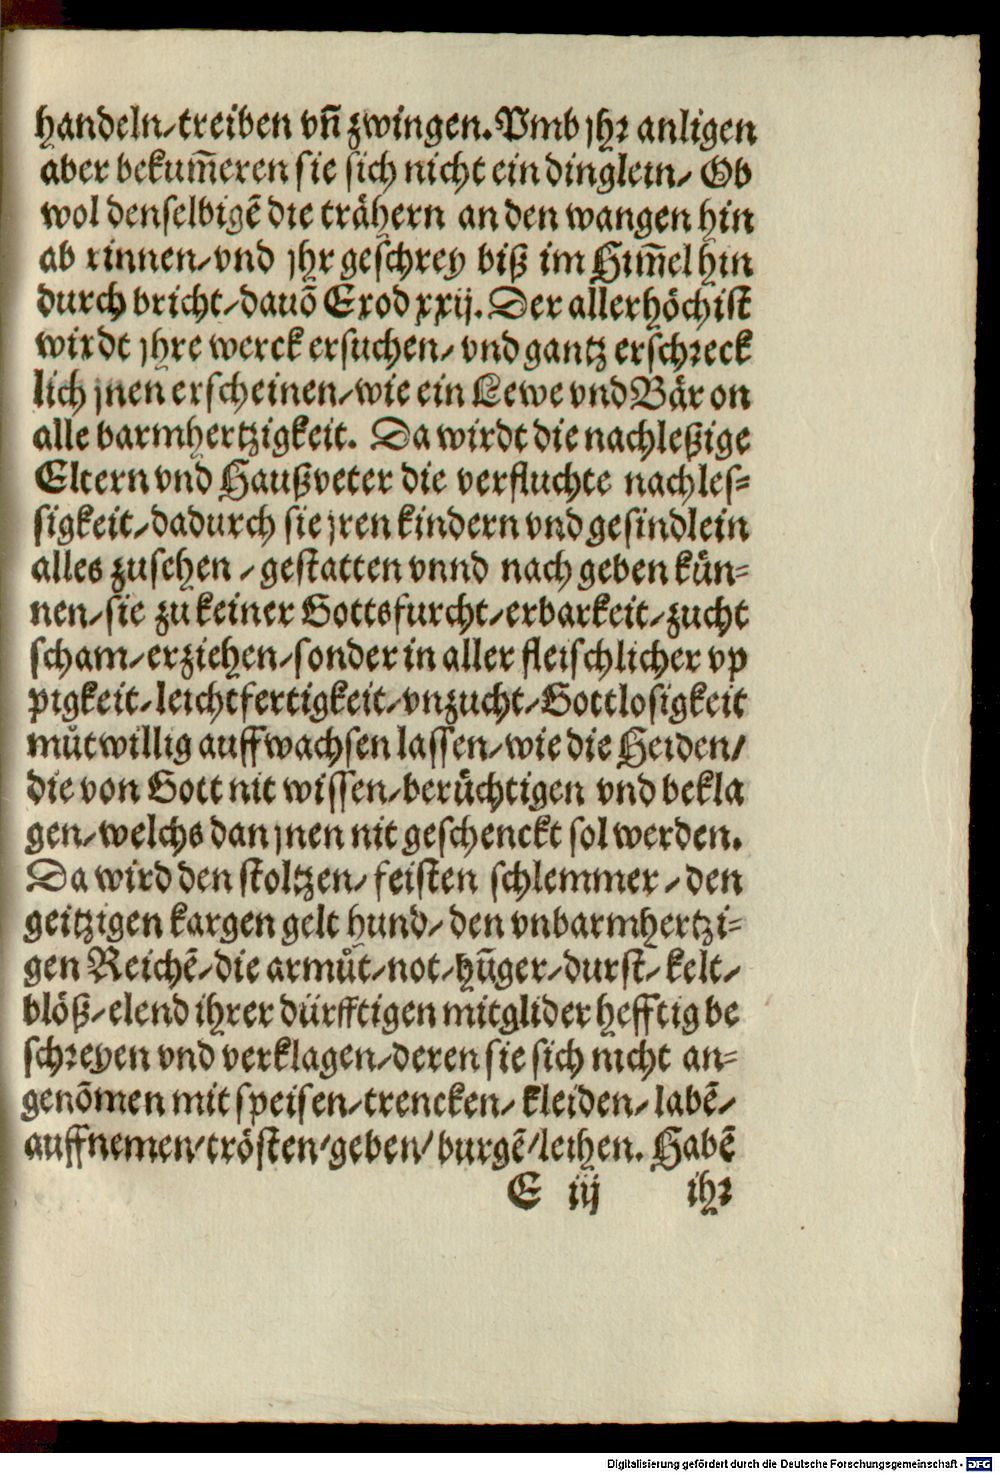 handeln/treiben vñ zwingen. Vmb jhr anligen
aber bekum̃eren sie sich nicht ein dinglein/ Ob
wol denselbigẽ die trähern an den wangen hin
ab rinnen/vnd jhr geschrey biß im Him̃el hin
durch bricht/dauõ Exod xxij. Der allerhöchist
wirdt jhre werck ersuchen/ vnd gantz erschreck
lich jnen erscheinen/wie ein Lewe vnd Bär on
alle barmhertzigkeit. Da wirdt die nachleßige
Eltern vnd Haußveter die verfluchte nachles-
sigkeit/dadurch sie jren kindern vnd gesindlein
alles zusehen / gestatten vnnd nach geben kün-
nen/sie zu keiner Gottsfurcht/erbarkeit/zucht
scham/erziehen/sonder in aller fleischlicher vp
pigkeit/leichtfertigkeit/vnzucht/Gottlosigkeit
můtwillig auffwachsen lassen/wie die Heiden/
die von Gott nit wissen/berüchtigen vnd bekla
gen/welchs dan jnen nit geschenckt sol werden.
Da wird den stoltzen/ feisten schlemmer/den
geitzigen kargen gelt hund/ den vnbarmhertzi-
gen Reichẽ/die armůt/not/hũger/durst/kelt/
blöß/elend ihrer dürfftigen mitglider hefftig be
schreyen vnd verklagen/deren sie sich nicht an-
genõmen mit speisen/trencken/ kleiden/labẽ/
auffnemen/trösten/geben/burgẽ/leihen. Habẽ
E iij ihr
Digitalisierung gefördert durch die Deutsche Forschungsgemeinschaft - DFG